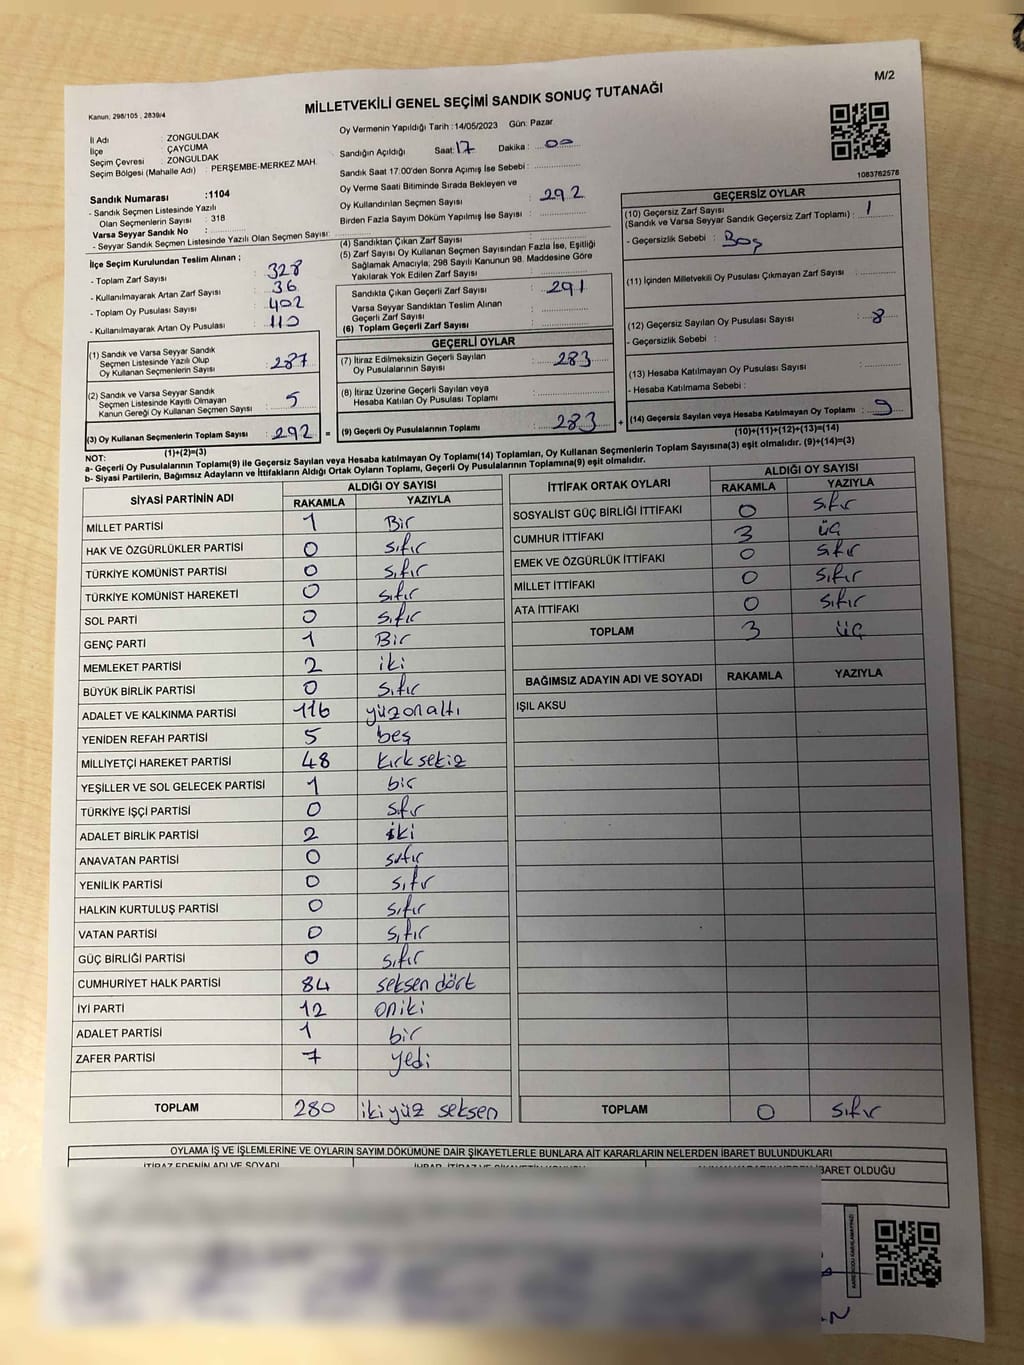 M/2
MİLLETVEKİLİ GENEL SEÇİMİ SANDIK SONUÇ TUTANAĞI
Kanun: 298/105 , 2839/4
İl Adı : ZONGULDAK
İlçe : ÇAYCUMA
Seçim Çevresi : ZONGULDAK
Seçim Bölgesi (Mahalle Adı) : PERŞEMBE-MERKEZ MAH.
Sandık Numarası :1104
- Sandık Seçmen Listesinde Yazılı
Olan Seçmenlerin Sayısı : 318
Varsa Seyyar Sandık No :
- Seyyar Sandık Seçmen Listesinde Yazılı Olan Seçmen Sayısı:
İlçe Seçim Kurulundan Teslim Alınan ;
- Toplam Zarf Sayısı : 328
- Kullanılmayarak Artan Zarf Sayısı : 36
- Toplam Oy Pusulası Sayısı : 402
- Kullanılmayarak Artan Oy Pusulası : 110
(1) Sandık ve Varsa Seyyar Sandık
Seçmen Listesinde Yazılı Olup
Oy Kullanan Seçmenlerin Sayısı : 287
(2) Sandık ve Varsa Seyyar Sandık
Seçmen Listesinde Kayıtlı Olmayan
Kanun Gereği Oy Kullanan Seçmen Sayısı : 5
(3) Oy Kullanan Seçmenlerin Toplam Sayısı : 292 =
(1)+(2)=(3)
Oy Vermenin Yapıldığı Tarih :14/05/2023 Gün: Pazar
Sandığın Açıldığı Saat: 17 Dakika : 00
Sandık Saat 17.00'den Sonra Açımış İse Sebebi :
Oy Verme Saati Bitiminde Sırada Bekleyen ve
Oy Kullandırılan Seçmen Sayısı : 292
Birden Fazla Sayım Döküm Yapılmış İse Sayısı :
(4) Sandıktan Çıkan Zarf Sayısı :
(5) Zarf Sayısı Oy Kullanan Seçmen Sayısından Fazla İse, Eşitliği
Sağlamak Amacıyla; 298 Sayılı Kanunun 98. Maddesine Göre
Yakılarak Yok Edilen Zarf Sayısı :
Sandıkta Çıkan Geçerli Zarf Sayısı : 291
Varsa Seyyar Sandıktan Teslim Alınan
Geçerli Zarf Sayısı :
(6) Toplam Geçerli Zarf Sayısı
GEÇERLİ OYLAR
(7) İtiraz Edilmeksizin Geçerli Sayılan
Oy Pusulalarının Sayısı : 283
(8) İtiraz Üzerine Geçerli Sayılan veya
Hesaba Katılan Oy Pusulası Toplamı :
(9) Geçerli Oy Pusulalarının Toplamı : 283 +
1083762578
GEÇERSİZ OYLAR
(10) Geçersiz Zarf Sayısı
(Sandık ve Varsa Seyyar Sandık Geçersiz Zarf Toplamı) : 1
- Geçersizlik Sebebi : Boş
(11) İçinden Milletvekili Oy Pusulası Çıkmayan Zarf Sayısı :
(12) Geçersiz Sayılan Oy Pusulası Sayısı : 8
- Geçersizlik Sebebi :
(13) Hesaba Katılmayan Oy Pusulası Sayısı :
- Hesaba Katılmama Sebebi :
(14) Geçersiz Sayılan veya Hesaba Katılmayan Oy Toplamı : 9
(10)+(11)+(12)+(13)=(14)
NOT:
a- Geçerli Oy Pusulalarının Toplamı(9) ile Geçersiz Sayılan veya Hesaba katılmayan Oy Toplamı(14) Toplamları, Oy Kullanan Seçmenlerin Toplam Sayısına(3) eşit olmalıdır. (9)+(14)=(3)
b- Siyasi Partilerin, Bağımsız Adayların ve İttifakların Aldığı Ortak Oyların Toplamı, Geçerli Oy Pusulalarının Toplamına(9) eşit olmalıdır.
SİYASİ PARTİNİN ADI ALDIĞI OY SAYISI
RAKAMLA YAZIYLA
MİLLET PARTİSİ 1 Bir
HAK VE ÖZGÜRLÜKLER PARTİSİ 0 sıfır
TÜRKİYE KOMÜNİST PARTİSİ 0 sıfır
TÜRKİYE KOMÜNİST HAREKETİ 0 sıfır
SOL PARTİ 0 sıfır
GENÇ PARTİ 1 Bir
MEMLEKET PARTİSİ 2 iki
BÜYÜK BİRLİK PARTİSİ 0 sıfır
ADALET VE KALKINMA PARTİSİ 116 yüzonaltı
YENİDEN REFAH PARTİSİ 5 beş
MİLLİYETÇİ HAREKET PARTİSİ 48 kırksekiz
YEŞİLLER VE SOL GELECEK PARTİSİ 1 bir
TÜRKİYE İŞÇİ PARTİSİ 0 sıfır
ADALET BİRLİK PARTİSİ 2 iki
ANAVATAN PARTİSİ 0 sıfır
YENİLİK PARTİSİ 0 sıfır
HALKIN KURTULUŞ PARTİSİ 0 sıfır
VATAN PARTİSİ 0 sıfır
GÜÇ BİRLİĞİ PARTİSİ 0 sıfır
CUMHURİYET HALK PARTİSİ 84 seksen dört
İYİ PARTİ 12 oniki
ADALET PARTİSİ 1 bir
ZAFER PARTİSİ 7 yedi
TOPLAM 280 ikiyüz seksen
İTTİFAK ORTAK OYLARI ALDIĞI OY SAYISI
RAKAMLA YAZIYLA
SOSYALİST GÜÇ BİRLİĞİ İTTİFAKI 0 sıfır
CUMHUR İTTİFAKI 3 üç
EMEK VE ÖZGÜRLÜK İTTİFAKI 0 sıfır
MİLLET İTTİFAKI 0 sıfır
ATA İTTİFAKI 0 sıfır
TOPLAM 3 üç
BAĞIMSIZ ADAYIN ADI VE SOYADI RAKAMLA YAZIYLA
IŞIL AKSU
TOPLAM 0 sıfır
OYLAMA İŞ VE İŞLEMLERİNE VE OYLARIN SAYIM DÖKÜMÜNE DAİR ŞİKAYETLERLE BUNLARA AİT KARARLARIN NELERDEN İBARET BULUNDUKLARI
İTİRAZ EDENİN ADI VE SOYADI
İBARET OLDUĞU